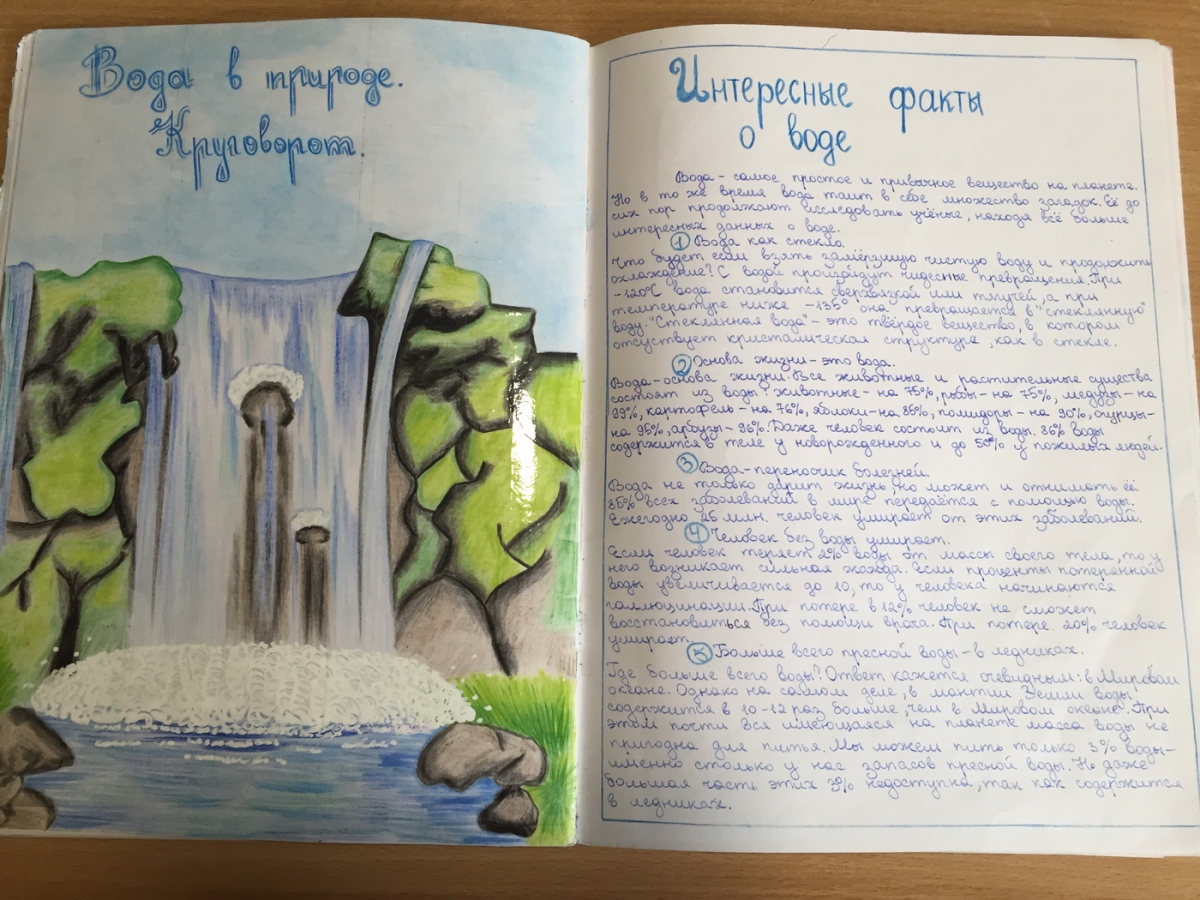 Вода в природе.
Круговорот.
Интересные факты
о воде
Вода - самое простое и привычное вещество на планете.
Но в то же время вода таит в себе множество загадок. Её до
сих пор продолжают исследовать учёные, находя всё больше
интересных данных о воде.
1 Вода как стекло.
Что будет если взять замёрзшую чистую воду и продолжить
охлаждение? С водой произойдут чудесные превращения. При
-120°C вода становится сверхвязкой или тягучей, а при
температуре ниже -135° она превращается в "стеклянную"
воду. "Стеклянная вода" - это твёрдое вещество, в котором
отсуствует кристалическая структура, как в стекле.
2 Основа жизни - это вода.
Вода - основа жизни. Все животные и растительные существа
состоят из воды: животные - на 75%, рыбы - на 75%, медузы - на
99%, картофель - на 76%, яблоки - на 85%, помидоры - на 90%, огурцы -
на 95%, арбузы - 96%. Даже человек состоит из воды. 86% воды
содержится в теле у новорожденного и до 50% у пожилых людей.
3 Вода - переносчик болезней.
Вода не только дарит жизнь, но может и отнимать её.
85% всех заболеваний в мире передаётся с помощью воды.
Ежегодно 25 млн. человек умирает от этих заболеваний.
4 Человек без воды умирает.
Если человек теряет 2% воды от массы своего тела, то у
него возникает сильная жажда. Если проценты потерянной
воды увеличивается до 10, то у человека начинаются
галлюцинации. При потере в 12% человек не сможет
восстановиться без помощи врача. При потере 20% человек
умирает.
5 Больше всего пресной воды - в ледниках.
Где больше всего воды? Ответ кажется очевидным: в Мировом
океане. Однако на самом деле, в мантии Земли воды
содержится в 10-12 раз больше, чем в Мировом океане. При
этом почти вся имеющаяся на планете масса воды не
пригодна для питья. Мы можем пить только 3% воды -
именно столько у нас запасов пресной воды. Но даже
большая часть этих 3% недоступна, так как содержится
в ледниках.